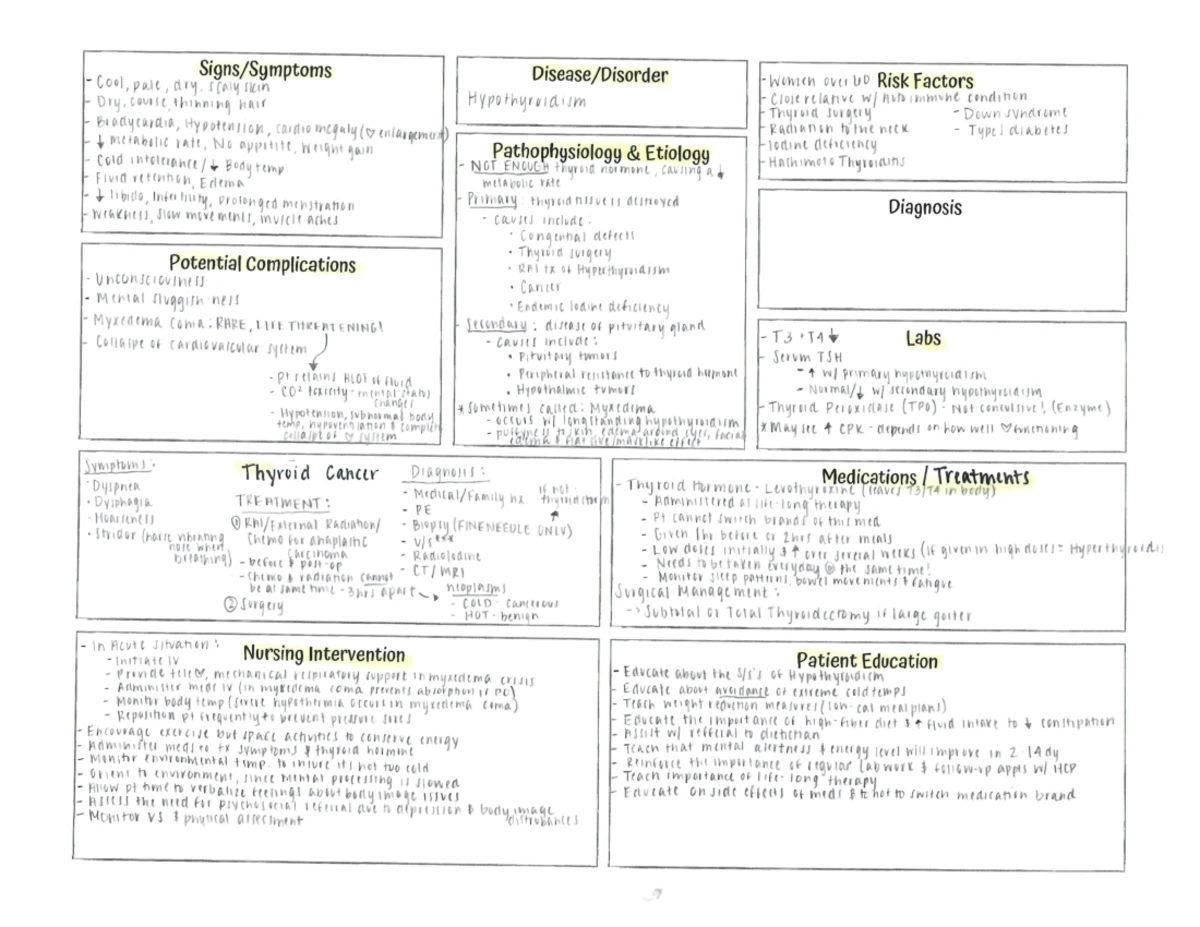 Signs/Symptoms
- Cool, pale, dry, scaly skin
- Dry, course thinning hair
- Bradycardia, Hypotension, cardiomegaly (♡ enlargement)
- ↓ metabolic rate, No appitite, Weight gain
- Cold intolerance/↓ Body temp
- Fluid retention, Edema
- ↓ libido, Infertility, prolonged menstration
- Weakness, slow movements, muscle aches
Potential Complications
- Unconsciousness
- Mental sluggish-ness
- Myxedema Coma: RARE, LIFE THREATENING!
- Collaspe of cardiovascular system
- Pt retains ALOT of fluid
- CO² toxicity - mental status
changes
- Hypotension, subnormal body
temp, hypoventilation & complete
collaspe of ♡ system
Disease/Disorder
Hypothyroidism
Pathophysiology & Etiology
- NOT ENOUGH thyroid hormone, causing a ↓
metabolic rate
- Primary: thyroid tissue is destroyed
- causes include:
• Congential defects
• Thyroid surgery
• RAI tx of Hyperthyroidism
• Cancer
• Endemic Iodine deficiency
- Secondary: disease of pitvitary gland
- causes include:
• Pitvitary tumors
• Peripheral resistance to thyroid hormone
• Hypothalmic tumors
* sometimes called: Myxedema
- occurs w/ longstanding hypothyroidism
- puffyness to skin, edema around eyes, facial
edema & flat live/masklike effect
Risk Factors
- Women over 60
- Close relative w/ Autoimmune condition
- Thyroid surgery
- Radiation to the neck
- Iodine deficiency
- Hashimoto Thyroiditis
- Down syndrome
- Type 1 diabetes
Diagnosis
Labs
- T3 + T4 ↓
- Serum TSH
- ↑ w/ primary hypothyroidism
- Normal/↓ w/ secondary hypothyroidism
- Thyroid Peroxidase (TPO) - Not conculsive! (Enzyme)
* May see ↑ CPK - depends on how well ♡ functioning
Thyroid Cancer
Symptoms:
· Dyspnea
· Dysphagia
· Hoarseness
· Stridor (harsh vibrating
noise when
breathing)
TREATMENT:
① RAI/External Radiation/
Chemo for anaplastic
carcinoma
- before & post-op
- Chemo & radiation cannot
be at same time - 3hrs apart
② Surgery
Diagnosis:
- Medical/Family hx
- PE
- Biopsy (FINE NEEDLE ONLY)
- V/S***
- Radioiodine
- CT/MRI
if not:
thyroid storm
neoplasms
- COLD - cancerous
- HOT - benign
Medications / Treatments
- Thyroid Hormone - Levothyroxine (leaves T3/T4 in body)
- Administered as life-long therapy
- Pt cannot switch brands of this med
- Given 1hr before or 2hrs after meals
- Low doses initially & ↑ over several weeks (if given in high doses = Hyperthyroidis
- Needs to be taken everyday @ the same time!
- Monitor sleep patterns, bowel movements & fatigue
Surgical Management:
-> Subtotal or Total Thyroidectomy if large goiter
Nursing Intervention
- In Acute Situation:
- Initiate IV
- Provide tele♡, mechanical respiratory support in myxedema crisis
- Administer meds IV (in myxedema coma prevents absorption if PO)
- Monitor body temp (severe hypothermia occurs in myxedema coma)
- Reposition pt frequently to prevent pressure sores
- Encourage exercise but space activities to conserve energy
- Administer meds to tx symptoms & thyroid hormone
- Monitor environmental temp. to insure it's not too cold
- Orient to environment, since mental processing is slowed
- Allow pt time to verbalize feelings about body image issues
- Assess the need for psychosocial referral due to depression & body image
distrubances
- Monitor VS & physical assessment
Patient Education
- Educate about the S/S's of Hypothyroidism
- Educate about avoidance of extreme cold temps
- Teach weight reduction measures (low-cal meal plans)
- Educate the importance of high-fiber diet & ↑ fluid intake to ↓ constipation
- Assist w/ refferal to dietician
- Teach that mental alertness & energy level will improve in 2-14 dy
- Reinforce the importance of regular lab work & follow-up appts w/ HCP
- Teach importance of life-long therapy
- Educate on side effects of meds & to not to switch medication brand